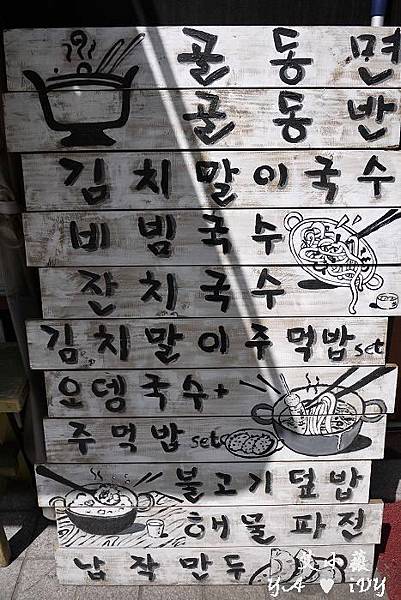 골동면
골동반
김치말이국수
비빔국수
잔치국수
김치말이주먹밥set
오뎅국수+
주먹밥set
불고기덮밥
해물파전
납작만두
YA ♥ iDY